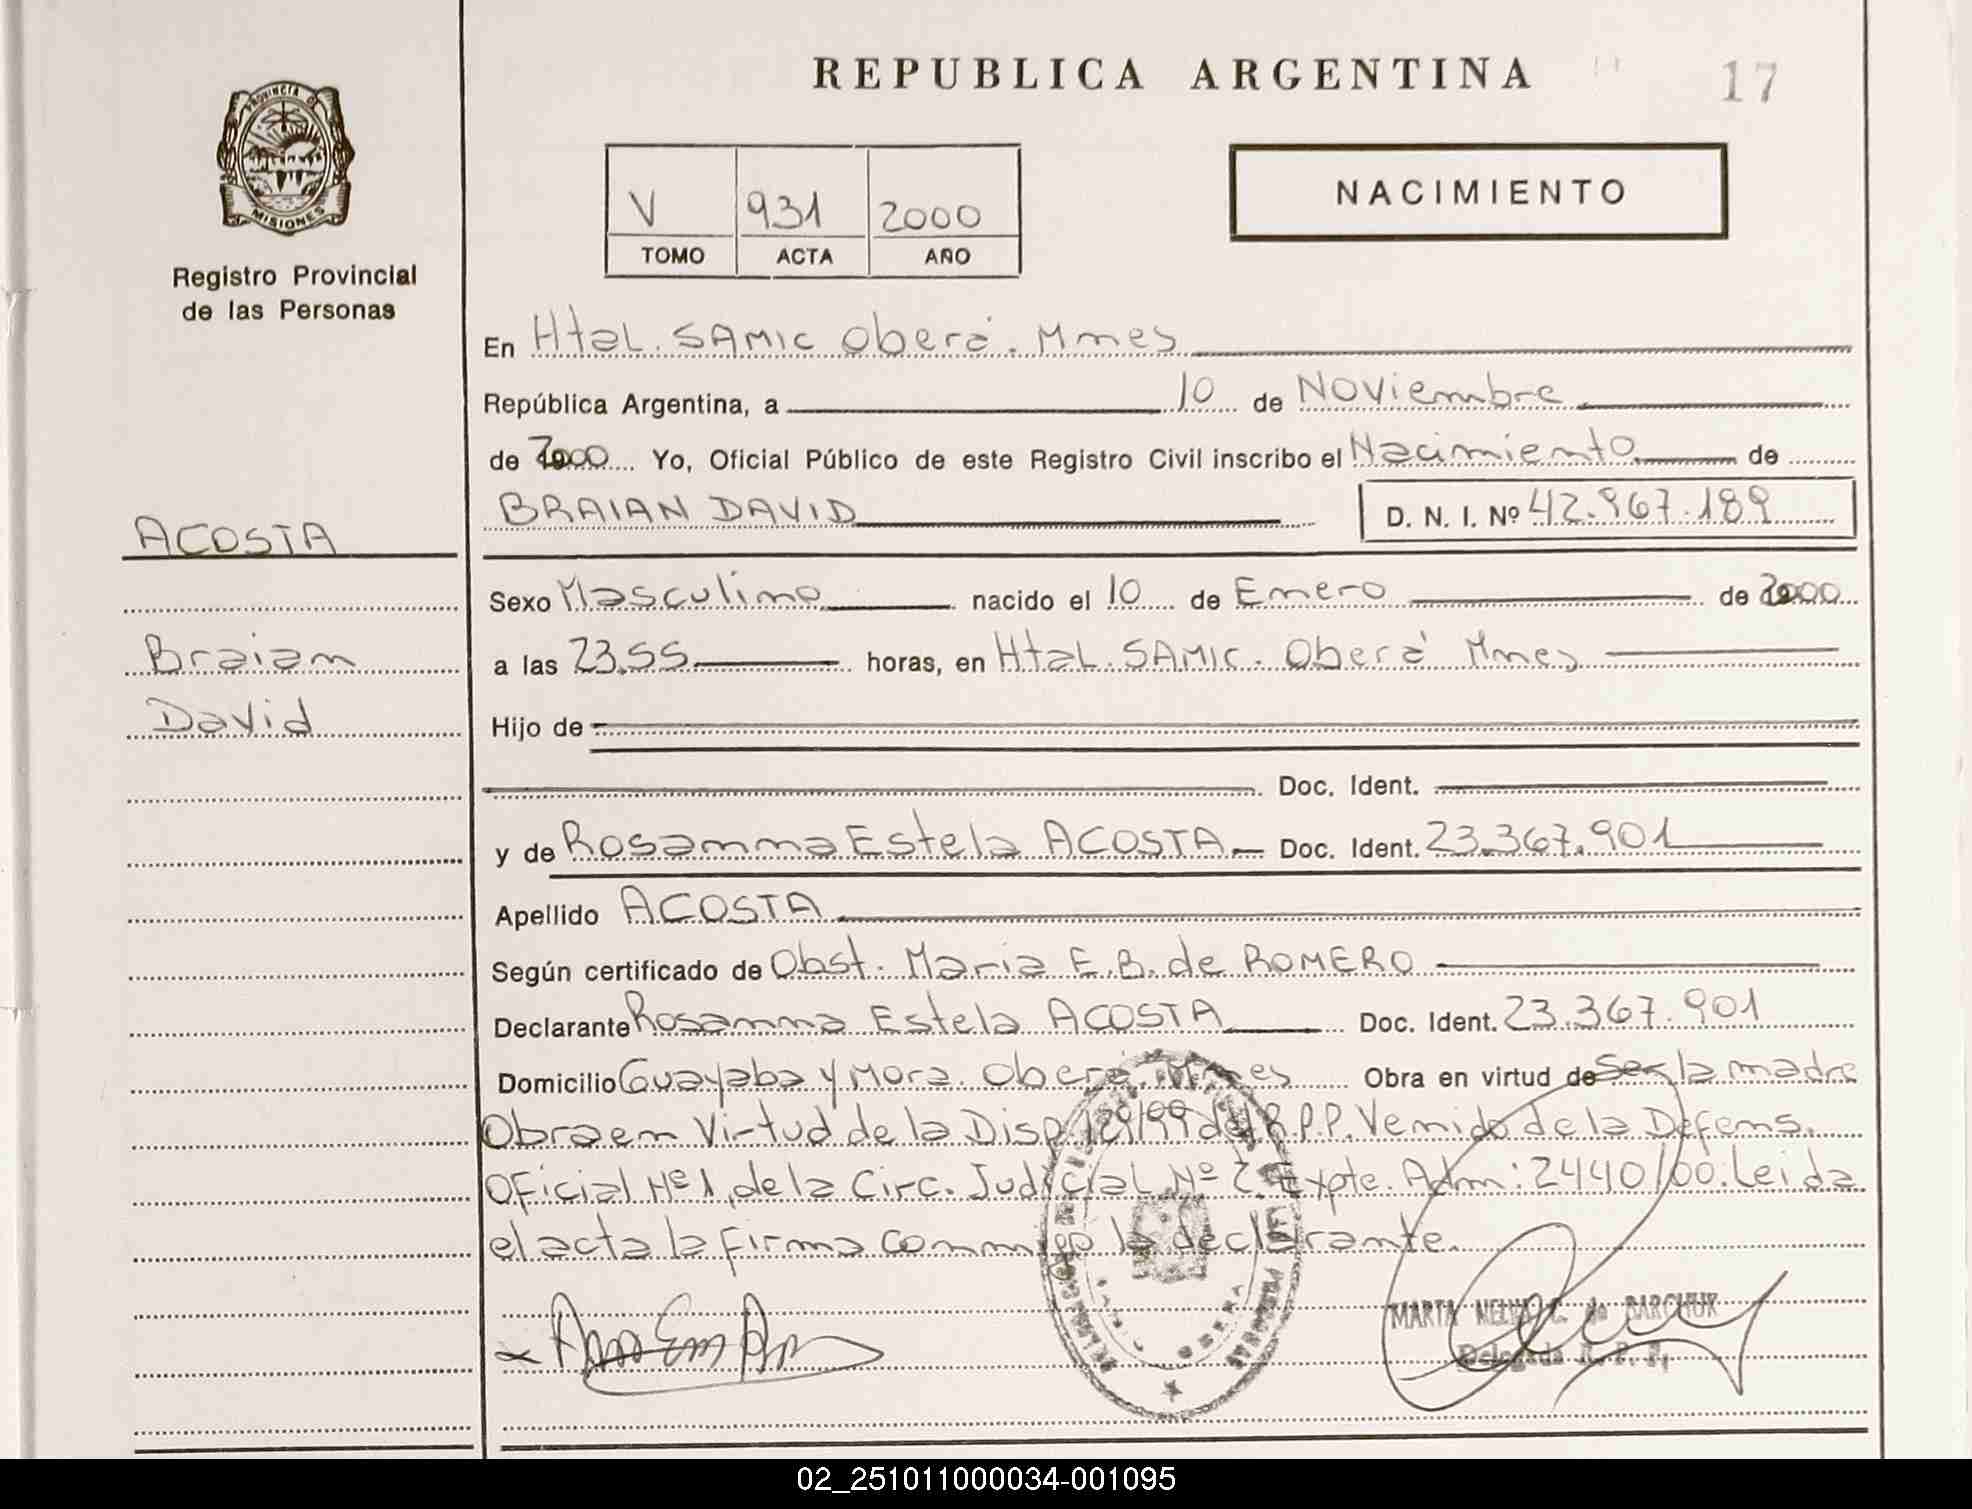 REPUBLICA ARGENTINA
17
PROVINCIA DE
MISIONES
Registro Provincial
de las Personas
V 931 2000
TOMO ACTA AÑO
NACIMIENTO
En Htal. SAMIC Oberá. Mnes
República Argentina, a 10 de Noviembre
de 2000 Yo, Oficial Público de este Registro Civil inscribo el Nacimiento de
BRAIAN DAVID D. N. I. Nº 42.967.189
ACOSTA
Braian
David
Sexo Masculino nacido el 10 de Enero de 2000
a las 23.55 horas, en Htal. SAMIC. Oberá Mnes
Hijo de
Doc. Ident.
y de Rosanna Estela ACOSTA Doc. Ident. 23.367.901
Apellido ACOSTA
Según certificado de Obst. Maria E.B. de ROMERO
Declarante Rosanna Estela ACOSTA Doc. Ident. 23.367.901
Domicilio Guayaba y Mora. Oberá. Mnes Obra en virtud de ser la madre
Obra en Virtud de la Disp. 129/99 del R.P.P. Venido de la Defens.
Oficial Nº1, de la Circ. Judicial Nº 2. Expte. Adm: 2440/00. Leida
el acta la firma conmigo la declarante.
MARTA NELVA C. de BARCHUK
Delegada R. P. P.
02_251011000034-001095